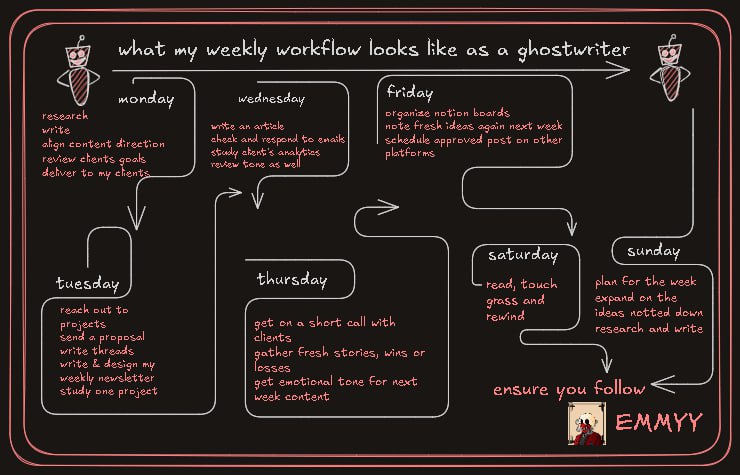 what my weekly workflow looks like as a ghostwriter
monday
research
write
align content direction
review clients goals
deliver to my clients
tuesday
reach out to
projects
send a proposal
write threads
write & design my
weekly newsletter
study one project
wednesday
write an article
check and respond to emails
study client's analytics
review tone as well
thursday
get on a short call with
clients
gather fresh stories, wins or
losses
get emotional tone for next
week content
friday
organize notion boards
note fresh ideas again next week
schedule approved post on other
platforms
saturday
read, touch
grass and
rewind
sunday
plan for the week
expand on the
ideas notted down
research and write
ensure you follow
EMMYY